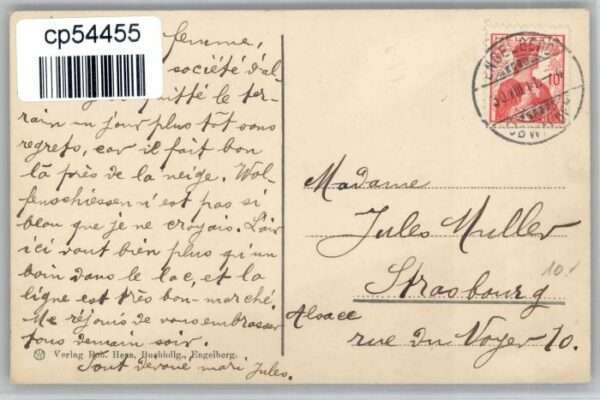 cp54455
femme,
société d'al-
quitté le ter-
rain un jour plus tôt sans
regrets, car il fait bon
là près de la neige. Wol-
fenschiessen n'est pas si
beau que je ne croyais. L'air
ici vaut bien plus qu'un
bain dans le lac, et la
ligne est très bon-marché.
Me réjouis de vous embrasser
tous demain soir.
Verlag Rob. Hess, Buchhdlg., Engelberg.
Tout dévoué mari Jules.
10
Madame
Jules Muller
Strasbourg
10.-
Alsace
rue du Noyer 10.